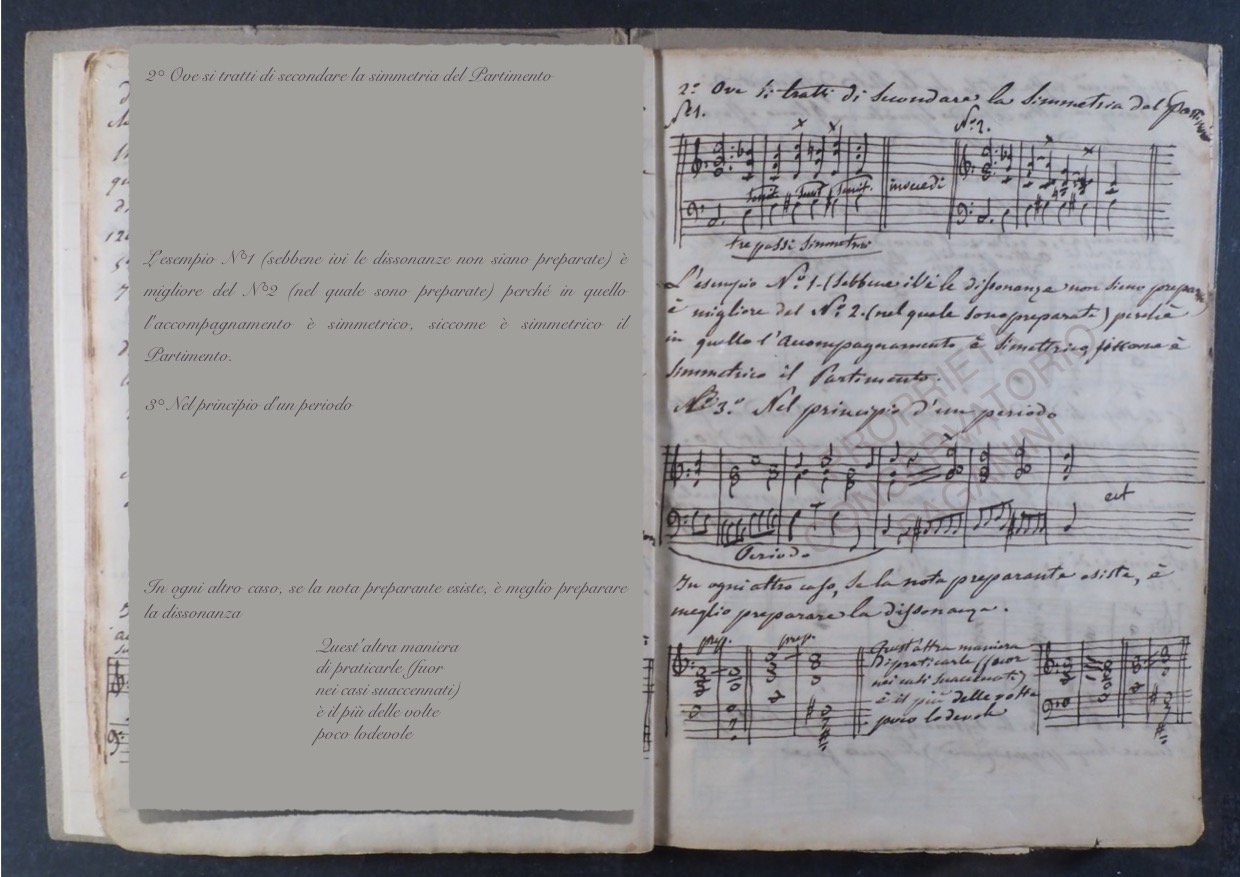 2º Ove si tratti di secondare la simmetria del Partimento
L'esempio Nº1 (sebbene ioi le dissonanze non siano preparate) è
migliore del Nº2 (nel quale sono preparate) perché in quello
l'accompagnamento è simmetrico, siccome è simmetrico il
Partimento.
3º Nel principio d'un periodo
In ogni altro caso, se la nota preparante esiste, è meglio preparare
la dissonanza
Quest'altra maniera
di praticarle (fuor
nei casi suaccennati)
è il più delle volte
poco lodevole
2º Ove si tratti di secondare la simmetria del Partimento
Nº1. Nº2.
invece di
tre passi simmetrici
L'esempio Nº 1. (sebbene ivi le dissonanze non sieno preparate)
è migliore del Nº 2. (nel quale sono preparate) perchè
in quello l'Accompagnamento è simettrico, siccome è
simmetrico il Partimento.
Nº 3.º Nel principio d'un periodo
Periodo
In ogni altro caso, se la nota preparante esiste, è
meglio preparare la dissonanza.
prep. prep.
Quest'altra maniera
di praticarle (fuor
nei casi suaccennati)
è il più delle volte
poco lodevole
PROPRIETÀ
CONSERVATORIO
PAGANINI